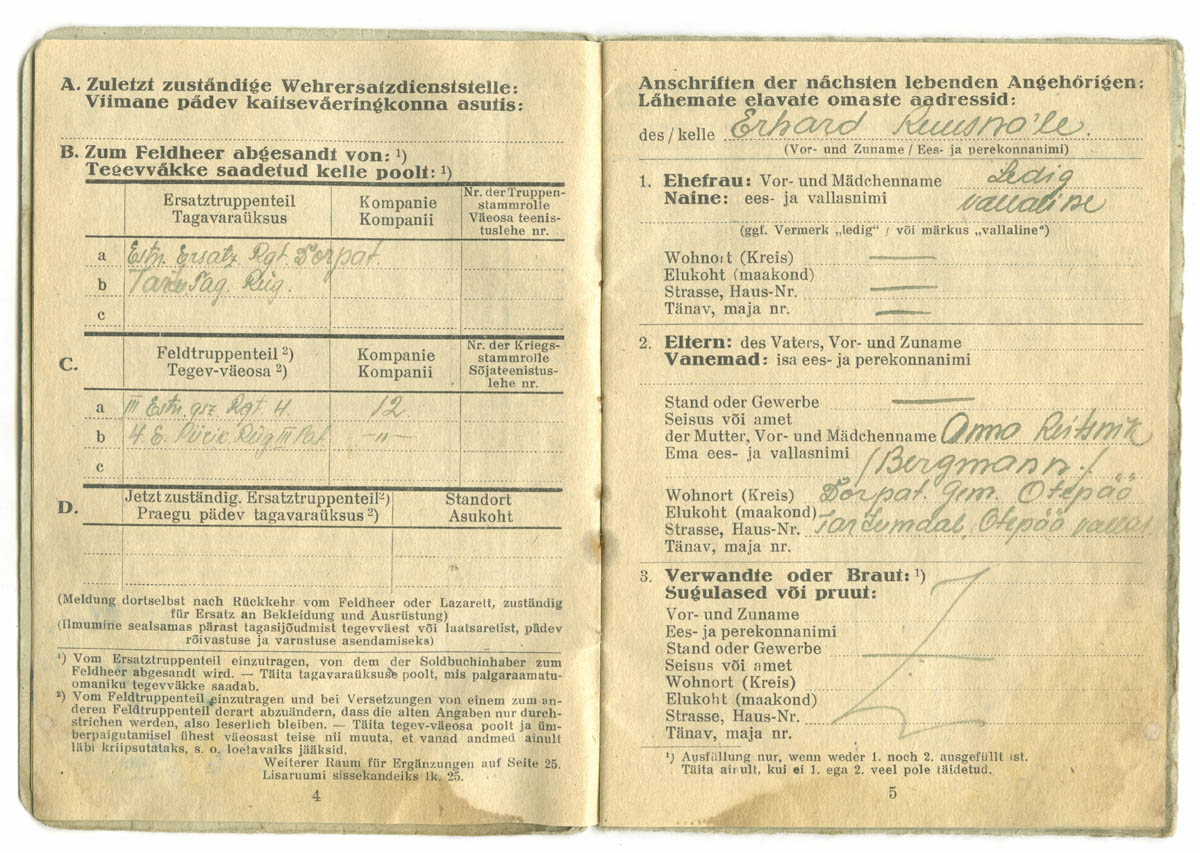 A. Zuletzt zuständige Wehrersatzdienststelle:
Viimane pädev kaitseväeringkonna asutis:
B. Zum Feldheer abgesandt von: ¹)
Tegevväkke saadetud kelle poolt: ¹)
Ersatztruppenteil
Tagavaraüksus
Kompanie
Kompanii
Nr. der Truppen-
stammrolle
Väeosa teenis-
tuslehe nr.
a Estn. Ersatz Rgt. Dorpat.
b Tartu Tag. Rüg.
c
C.
Feldtruppenteil ²)
Tegev-väeosa ²)
Kompanie
Kompanii
Nr. der Kriegs-
stammrolle
Sõjateenistus-
lehe nr.
a III Estn. gsz Rgt. 4. 12.
b 4. E. Rüg III Pat. —"—
c
D.
Jetzt zuständig. Ersatztruppenteil²)
Praegu pädev tagavaraüksus ²)
Standort
Asukoht
(Meldung dortselbst nach Rückkehr vom Feldheer oder Lazarett, zuständig
für Ersatz an Bekleidung und Ausrüstung)
(Ilmumine sealsamas pärast tagasijõudmist tegevväest või laatsaretist, pädev
rõivastuse ja varustuse asendamiseks)
¹) Vom Ersatztruppenteil einzutragen, von dem der Soldbuchinhaber zum
Feldheer abgesandt wird. — Täita tagavaraüksuse poolt, mis palgaraamatu-
omaniku tegevväkke saadab.
²) Vom Feldtruppenteil einzutragen und bei Versetzungen von einem zum an-
deren Feldtruppenteil derart abzuändern, dass die alten Angaben nur durch-
strichen werden, also leserlich bleiben. — Täita tegev-väeosa poolt ja üm-
berpaigutamisel ühest väeosast teise nii muuta, et vanad andmed ainult
läbi kriipsutataks, s. o. loetavaiks jääksid.
Weiterer Raum für Ergänzungen auf Seite 25.
Lisaruumi sissekandeiks lk. 25.
4
Anschriften der nächsten lebenden Angehörigen:
Lähemate elavate omaste aadressid:
des / kelle Erhard
(Vor- und Zuname / Ees- ja perekonnanimi)
1. Ehefrau: Vor- und Mädchenname Ledig
Naine: ees- ja vallasnimi vallaline
(ggf. Vermerk „ledig“ / või märkus „vallaline“)
Wohnort (Kreis)
Elukoht (maakond)
Strasse, Haus-Nr.
Tänav, maja nr.
2. Eltern: des Vaters, Vor- und Zuname
Vanemad: isa ees- ja perekonnanimi
Stand oder Gewerbe
Seisus või amet
der Mutter, Vor- und Mädchenname Anna
Ema ees- ja vallasnimi /Bergmann./
Wohnort (Kreis) Dorpat. Gem. Otepää
Elukoht (maakond)
Strasse, Haus-Nr. Tartumaal, Otepää vallas
Tänav, maja nr.
3. Verwandte oder Braut: ¹)
Sugulased või pruut:
Vor- und Zuname
Ees- ja perekonnanimi
Stand oder Gewerbe
Seisus või amet
Wohnort (Kreis)
Elukoht (maakond)
Strasse, Haus-Nr.
Tänav, maja nr.
¹) Ausfüllung nur, wenn weder 1. noch 2. ausgefüllt ist.
Täita ainult, kui ei 1. ega 2. veel pole täidetud.
5